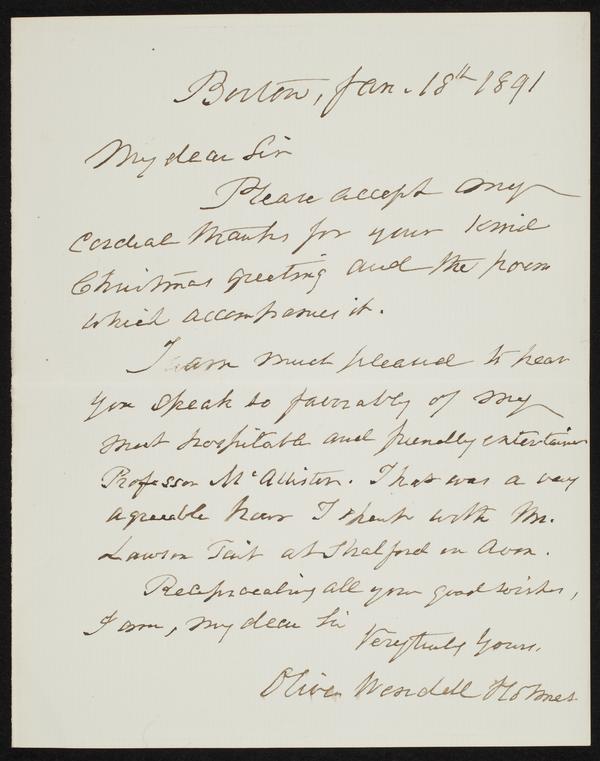 Boston, Jan. 18th 1891
My dear Sir
Please accept my
cordial thanks for your kind
Christmas greeting and the poem
which accompanies it.
I am much pleased to hear
you speak so favorably of my
most hospitable and friendly entertainer
Professor McAllister. That was a very
agreeable hour I spent with Mr.
Lawson Tait at Stratford on Avon.
Reciprocating all your good wishes,
I am, my dear Sir
Very truly Yours,
Oliver Wendell Holmes.